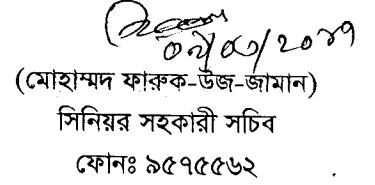 (মোহাম্মদ ফারুক-উজ-জামান)
সিনিয়র সহকারী সচিব
ফোনঃ ৯৫৭৫৫৬২